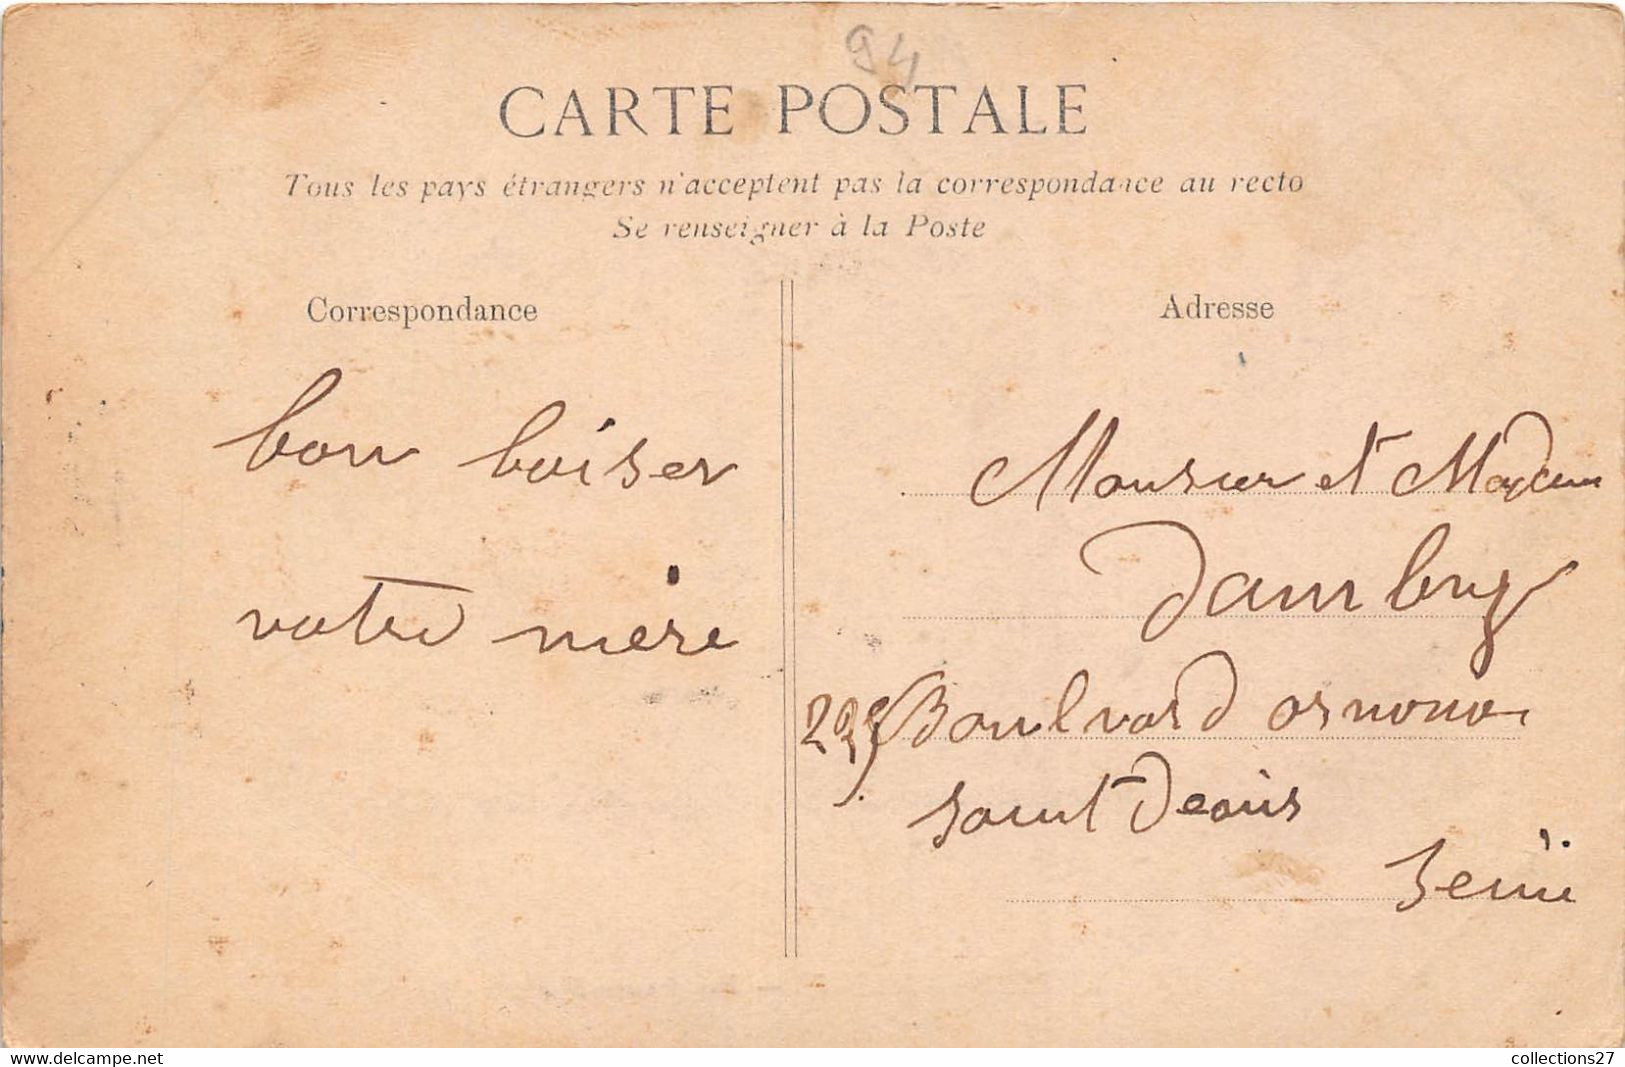 94
CARTE POSTALE
Tous les pays étrangers n'acceptent pas la correspondance au recto
Se renseigner à la Poste
Correspondance
Adresse
bon baiser
votre mère
Monsieur et Madam
Boulvard ornano
saint Denis
Seine
www.delcampe.net
collections27